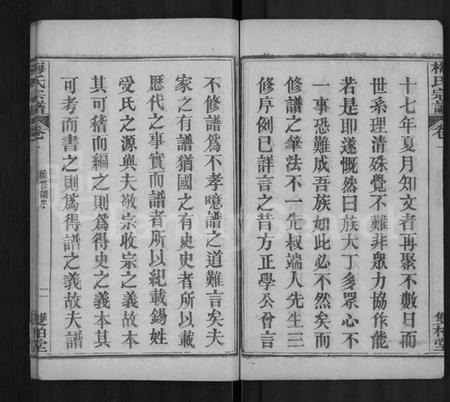 梅氏宗譜
卷一
雙柏堂
十七年夏月知文者再聚不數日而
世系理清殊覺不難非眾力協作能
若是耶遂慨然曰族大丁多眾心不
一事恐難成吾族如此必不然矣而
修譜之筆法不一先叔端人先生三
修序例已詳言之昔方正學公曾言
不修譜爲不孝噫譜之道難言矣夫
家之有譜猶國之有史史者所以載
歷代之事實而譜者所以紀載錫姓
受氏之源與夫敬宗收宗之義故本
其可稽而編之則爲得史之義本其
可考而書之則爲得譜之義故夫譜
梅氏宗譜
卷一
序
一
雙柏堂